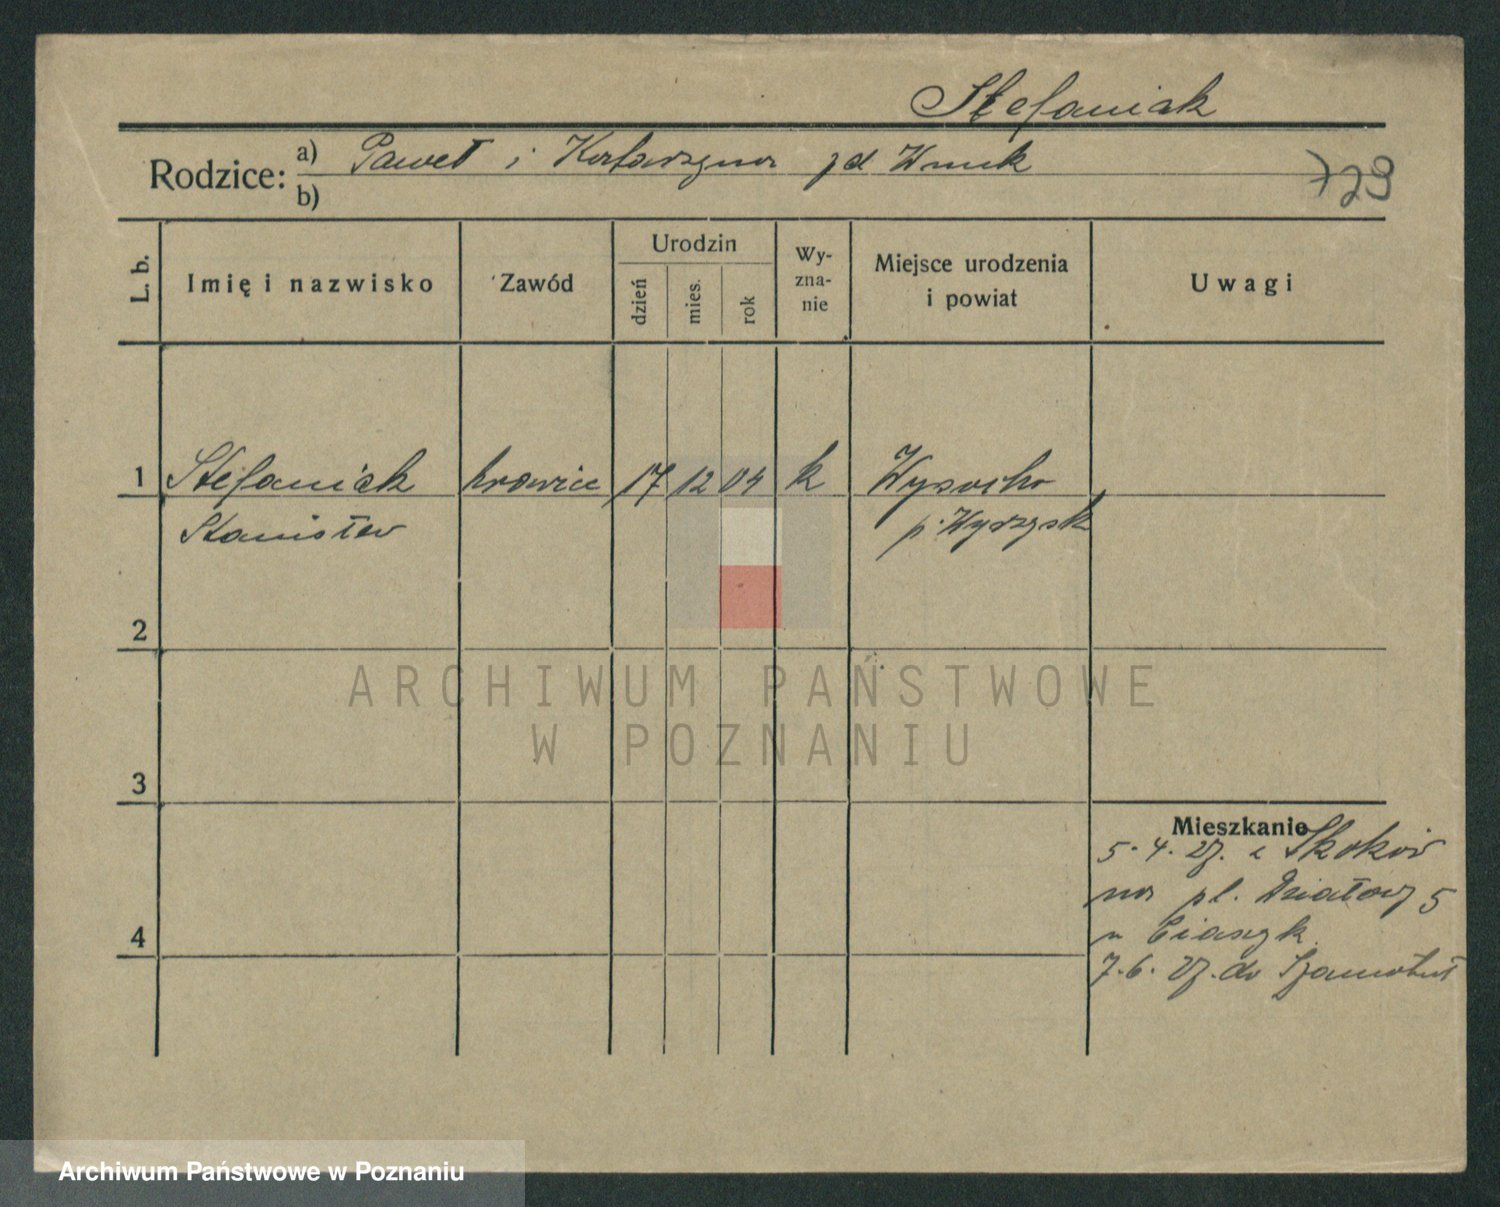 Stefaniak
Rodzice: a) Paweł i Katarzyna zd Wnuk
b)
729
L. b.
Imię i nazwisko
Zawód
Urodzin
dzień
mies.
rok
Wy-
zna-
nie
Miejsce urodzenia
i powiat
Uwagi
1 Stefaniak krawiec 17 12 04 k Wysocka
Stanisław p. Wyrzysk
2
3
4
Mieszkanie
5.4.27. z Skoków
na pl. Działowy 5
u Ciaszyk
7.6.27. do Szamotuł
ARCHIWUM PAŃSTWOWE
W POZNANIU
Archiwum Państwowe w Poznaniu